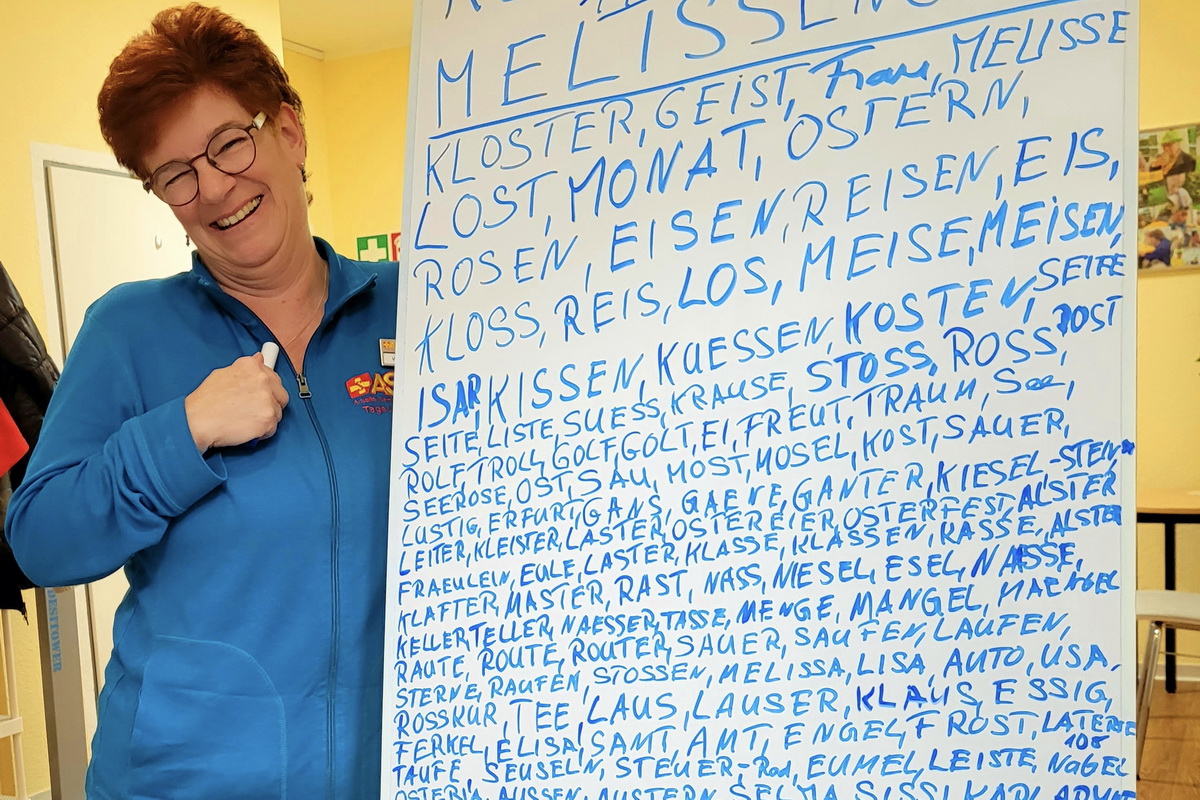 MELISSENG
KLOSTER, GEIST, Frau, MELISSE
LOST, MONAT, OSTERN,
ROSEN, EISEN, REISEN, EIS,
KLOSS, REIS, LOS, MEISE, MEISEN,
ISAR, KISSEN, KUESSEN, KOSTEN, SEIFE
SEITE, LISTE, SUESS, KRAUSE, STOSS, ROSS, POST
ROLF, TROLL, GOLF, GOLT, EI, FREUT, TRAUM, See,
SEEROSE, OST, SAU, MOST, MOSEL, KOST, SAUER,
LUSTIG, ERFURT, GANS, GAENE, GANTER, KIESEL, -STEIN
LEITER, KLEISTER, LASTER, OSTEREIER, OSTERFEST, ALSTER
FRAEULEIN, EULE, LASTER, KLASSE, KLASSEN, KASSE, ALSTER
KLAFTER, MASTER, RAST, NASS, NIESEL, ESEL, NAESSE,
KELLER, TELLER, NAESSER, TASSE, MENGE, MANGEL, MAENGEL
RAUTE, ROUTE, ROUTER, SAUER, SAUFEN, LAUFEN,
STERNE, RAUFEN, STOSSEN, MELISSA, LISA, AUTO, USA.
ROSSKUR, TEE, LAUS, LAUSER, KLAUS, ESSIG,
FERKEL, ELISA, SAMT, AMT, ENGEL, FROST, LATERNE
108
TAUFE, SEUSELN, STEUER-Rad, EUMEL, LEISTE, NAGEL
OSTERIA, AUSSEN, AUSTERN, SELMA, SISSI, KARL
AS
Tage
DESITOWER